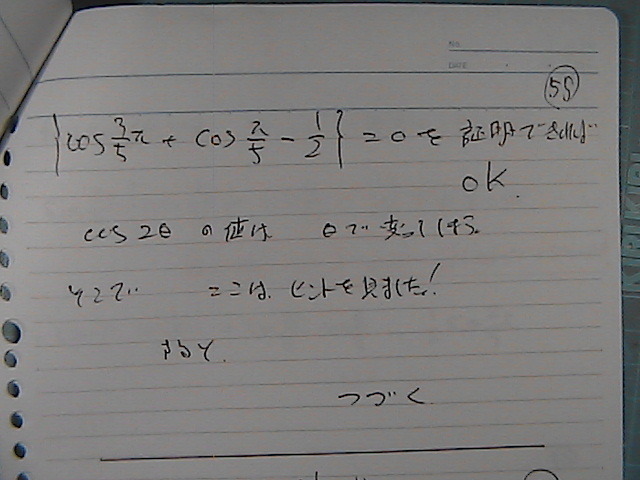 NO.
DATE
59
{cos 3/5 π + cos π/5 - 1/2} = 0 を 証明できれば
OK.
cos 2θ の値は θで変ってしまう。
そこで ここは、ヒントを見ました!
すると、
つづく